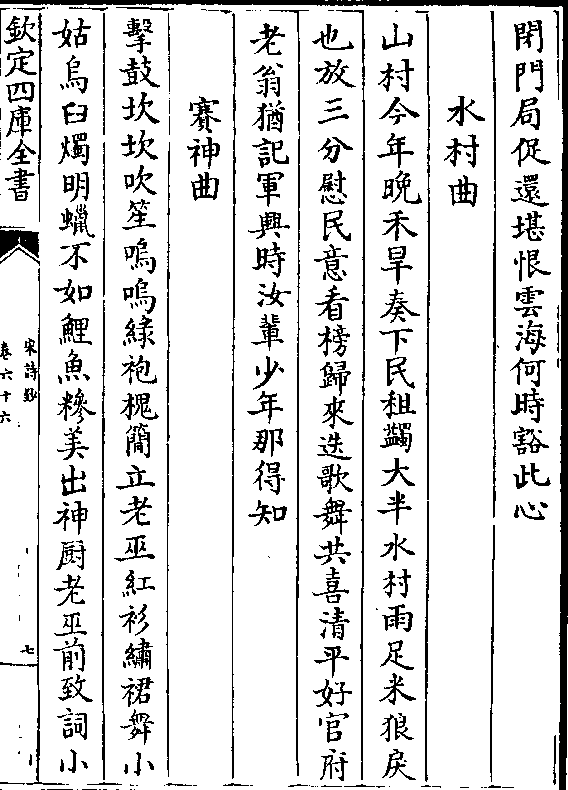 閉門局促還堪恨雲海何時豁此心
水村曲
山村今年晚禾旱奏下民租蠲大半水村雨足米狼戾
也放三分慰民意看榜歸來迭歌舞共喜清平好官府
老翁猶記軍興時汝輩少年那得知
賽神曲
擊鼓坎坎吹笙嗚嗚綠袍槐簡立老巫紅衫繡裙舞小
姑烏臼燭明蠟不如鯉魚糝美出神厨老巫前致詞小
欽定四庫全書
宋詩鈔
卷六十六
七